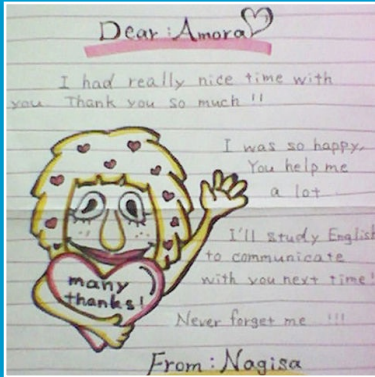 Dear : Amora
I had really nice time with
you. Thank you so much !!
I was so happy.
You help me
a lot
I'll study English
to communicate
with you next time!
many
thanks!
Never forget me !!!
From : Nagisa